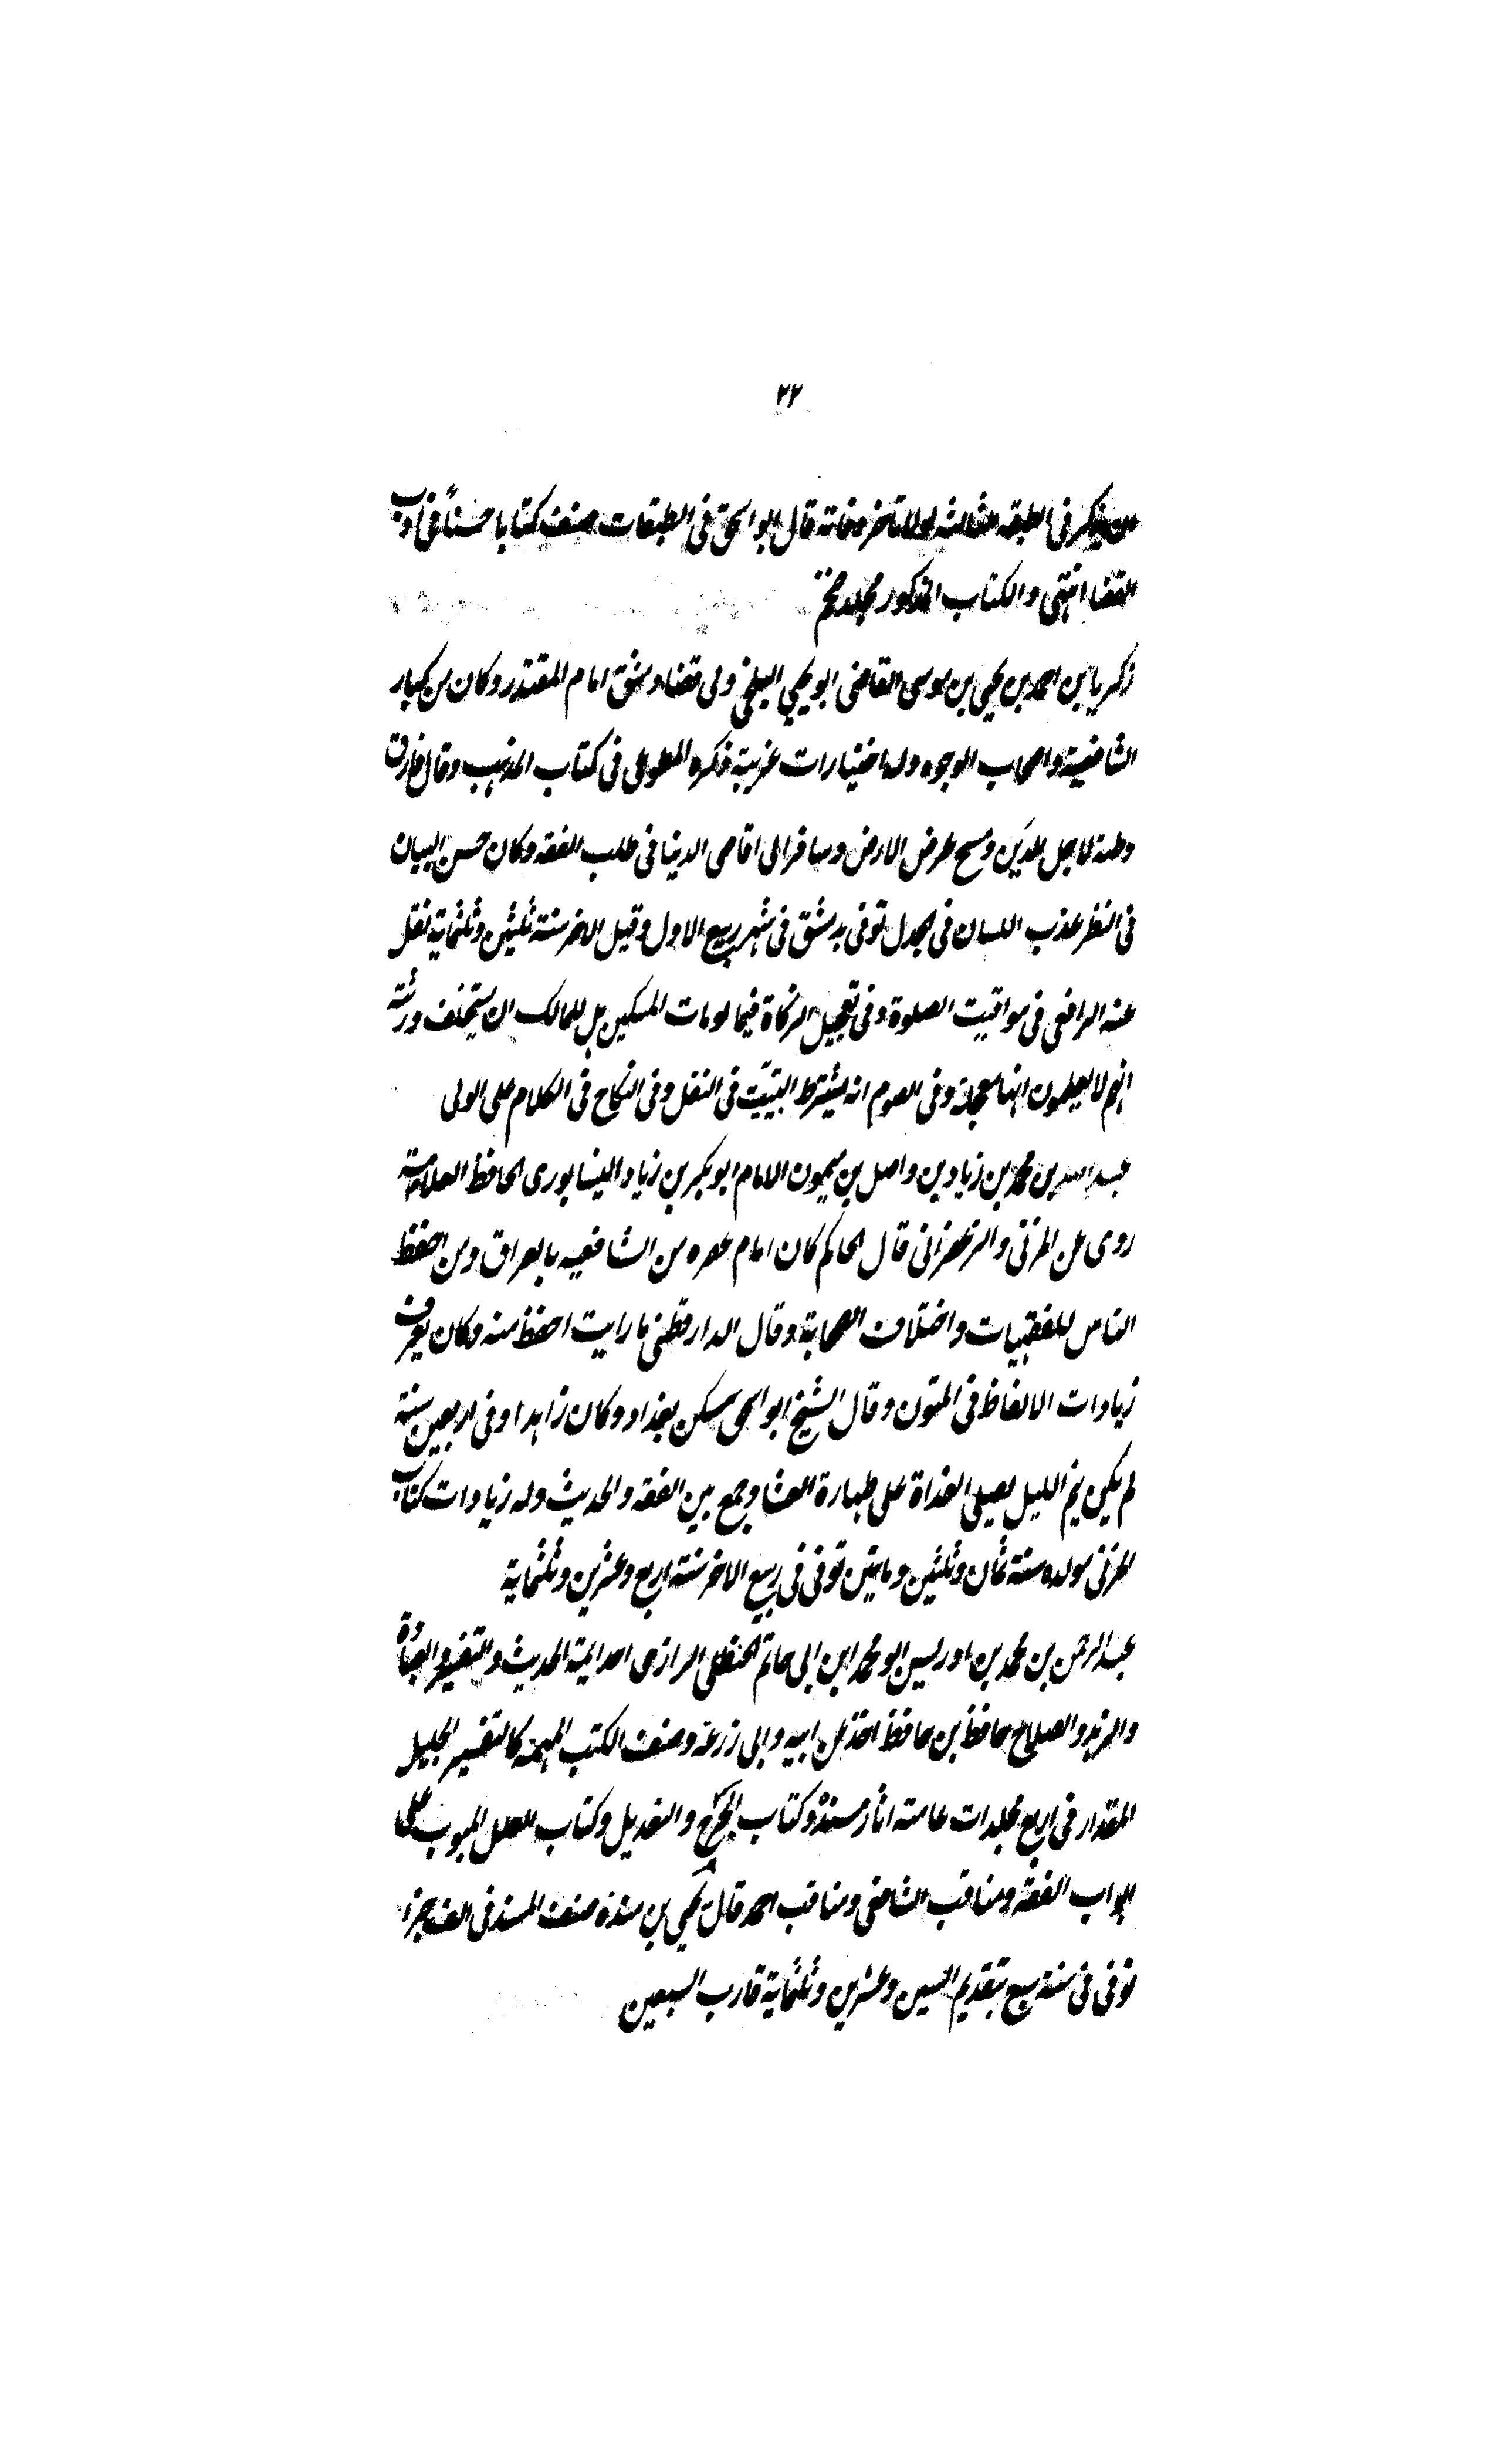 ٢٢
يذكر فى الطبقة الثالثة لولا تاخر وفاته قال ابو اسحق فى الطبقات صنف كتابا حسنا فى ادب
القضا انتهى والكتاب المذكور مجلد ضخم
زكريا بن احمد بن يحيى بن موسى القاضى ابو يحيى البلخى ولى قضا دمشق امام المقتدر وكان من كبار
الشافعية واصحاب الوجوه وله اختيارات غريبة ذكره المطوعى فى كتاب المذهب وقال فارق
وطنه لاجل الدين ومسح عرض الارض وسافر الى اقاصى الدنيا فى طلب الفقه وكان حسن البيان
فى النظر عذب اللسان فى الجدل توفى بدمشق فى شهر ربيع الاول وقيل الاخر سنة ثلثين وثلثماية نقل
عنه الرافعى فى مواقيت الصلوة وفى تعجيل الزكاة فيما لو مات المسكين هل للمالك ان يستحلف ورثته
انهم لا يعلمون انها معجلة وفى الصوم انه يشترط التبييت فى النفل وفى النكاح فى الكلام على الولى
عبد الله بن محمد بن زياد بن واصل بن ميمون الامام ابو بكر بن زياد النيسابورى الحافظ العلامة
روى عن المزنى والزعفرانى قال الحاكم كان امام عصره من الشافعيه بالعراق ومن احفظ
الناس للفقهيات واختلاف الصحابة وقال الدارقطنى ما رايت احفظ منه وكان يعرف
زيادات الالفاظ فى المتون وقال الشيخ ابو اسحق سكن بغداد وكان زاهدا وفى اربعين سنة
لم يكن ينم الليل يصلى الغداة على طهارة العشا وجمع بين الفقه والحديث وله زيادات كتاب
المزنى مولده سنة ثمان وثلثين ومايتين توفى فى ربيع الاخر سنة اربع وعشرين وثلثماية
عبد الرحمن بن محمد بن ادريس ابو محمد ابن ابى حاتم الحنظلى الرازى احد ايمة الحديث والتفسير والعبادة
والزهد والصلاح حافظ بن حافظ اخذ عن ابيه وابى زرعة وصنف الكتب المهمة كالتفسير الجليل
المقدار فى اربع مجلدات عامته اثار مسندة وكتاب الجرح والتعديل وكتاب العلل المبوب على
ابواب الفقه ومناقب الشافعى ومناقب احمد قال يحيى بن منده صنف المسند فى الف جزا
توفى فى سنة سبع بتقديم السين وعشرين وثلثماية قارب السبعين